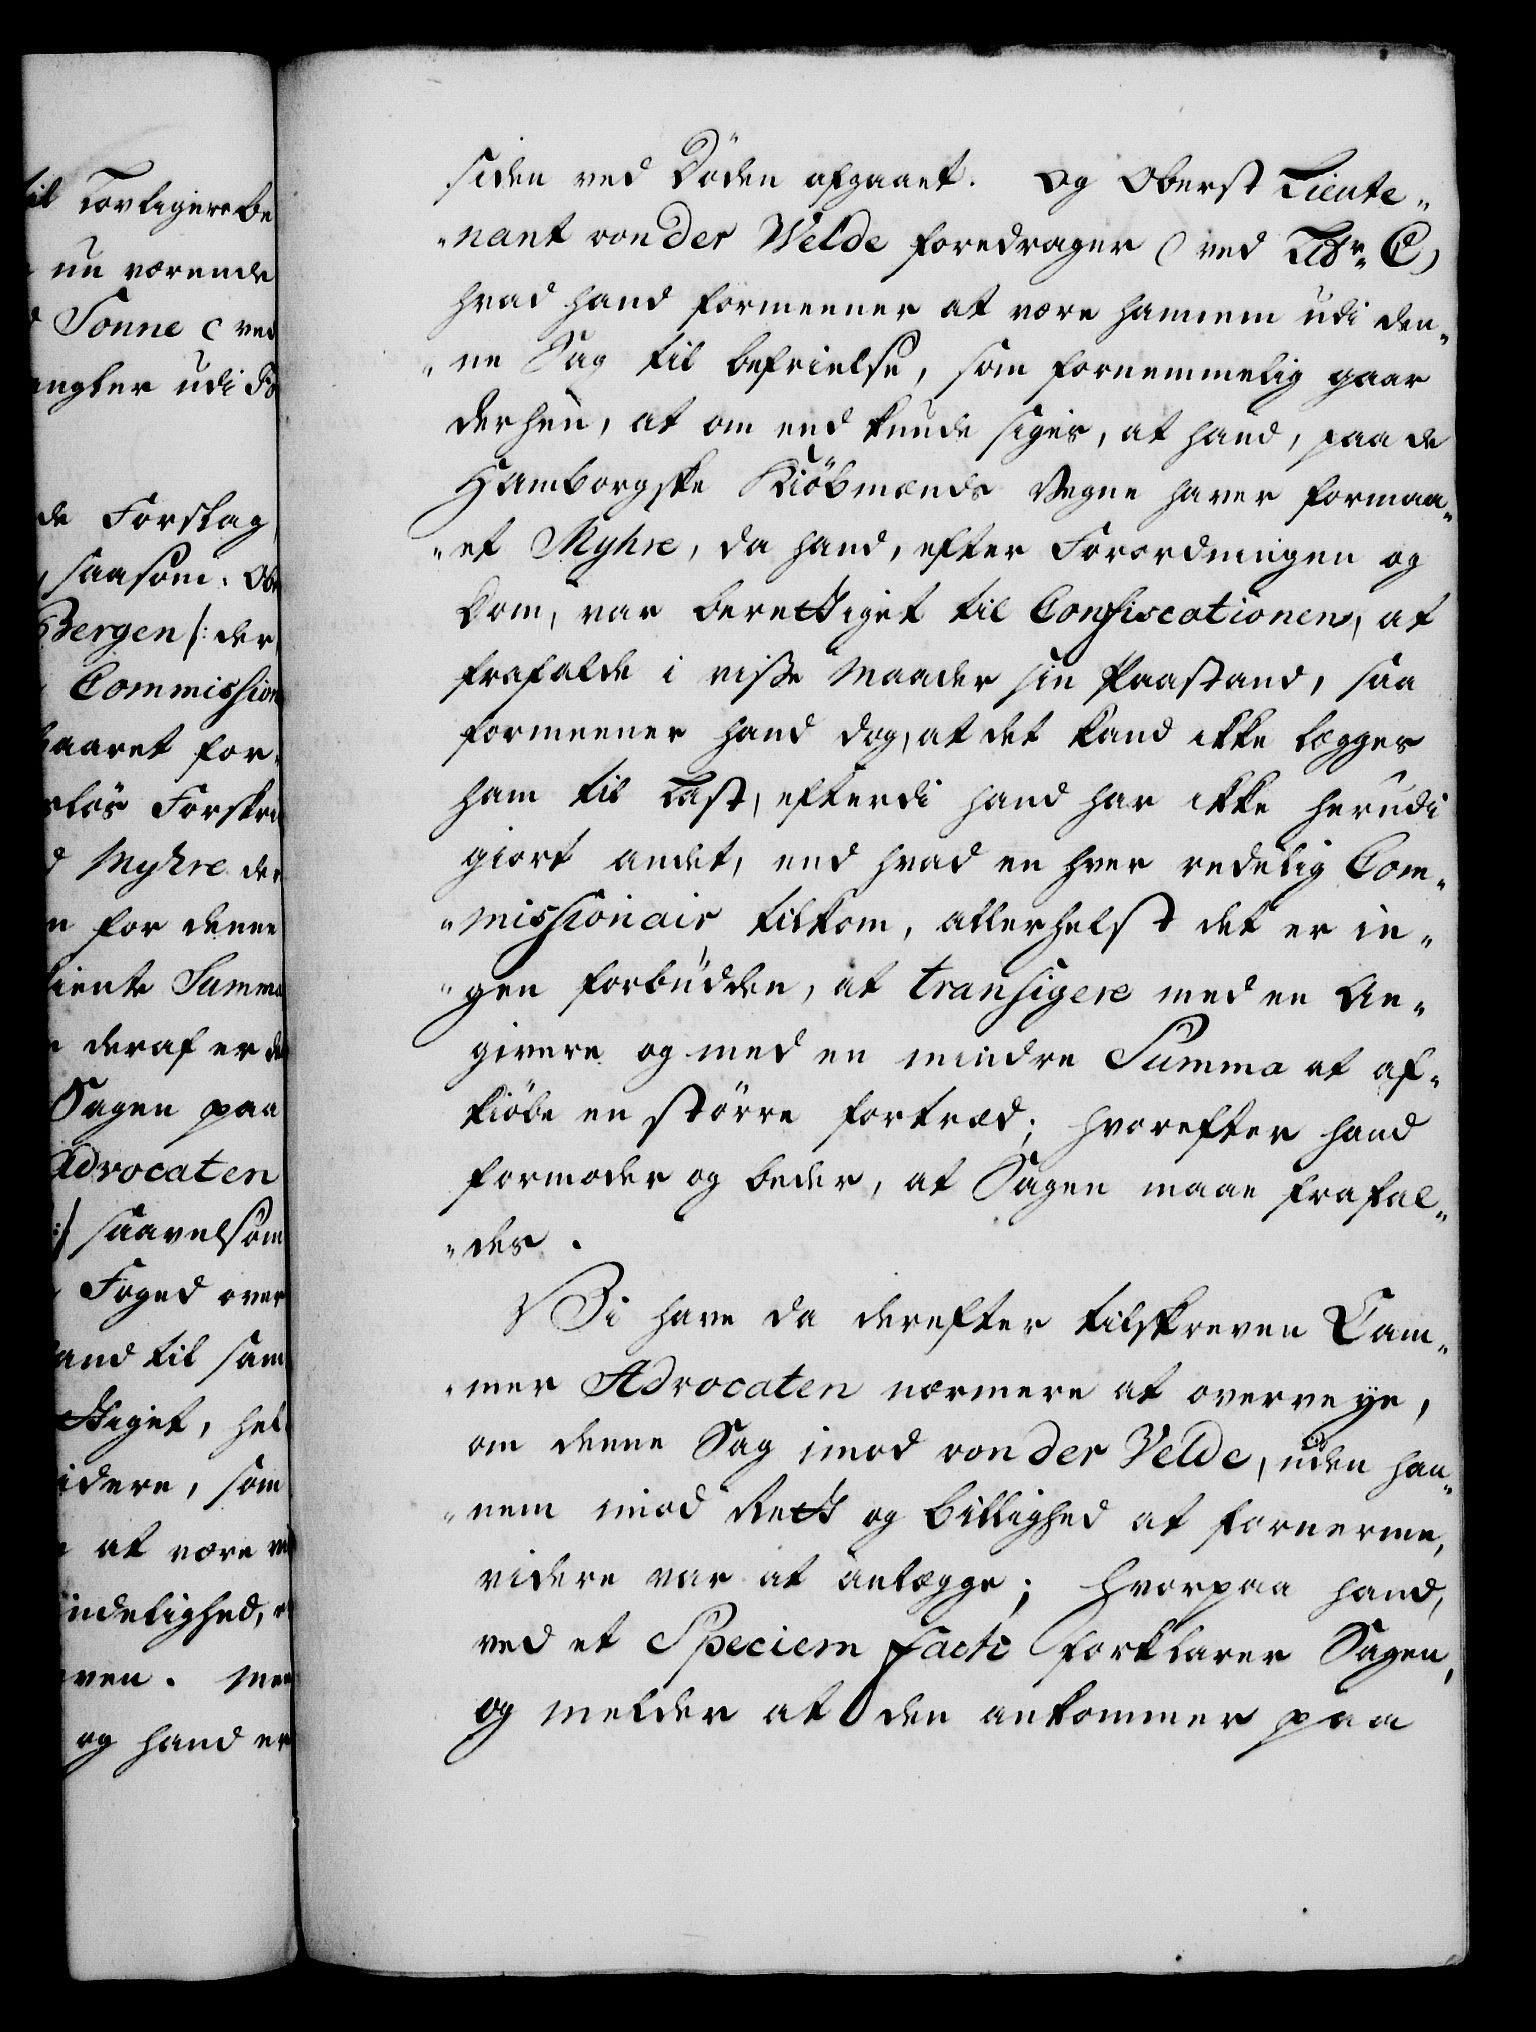 til Tovligere be
nu værende
Sonne ( ved
ngler udi Fo
de Forslag
saasom: Ob
Bergen /: der
Commission
aaret for-
sløs Forskri
Myhre der
for denne
tiente Summa
deraf er de
Sagen paa
Advocaten
:/ saavelsom
Foged over
and til sam
ttiget, hel
idere, som
at være ve
indelighed,
ven. Men
og hand er
siden ved Döden afgaaet. Og Oberst Lieute„
„nant von der Welde foredrager ( ved Littr. C)
hvad hand formeener at være hannem udi den„
„ne Sag til befrielse, som fornemmelig gaar
derhen, at om end kunde siges, at hand, paa de
Hamborgske Kiöbmænds Vegne haver formaa„
„et Myhre, da hand, efter Forordningen og
Dom, var berettiget til Confiscationen, at
frafalde i visse Maader sin Paastand, saa
formeener hand dog, at det kand ikke lægges
ham til Last, efterdi hand har ikke herudi
giort andet, end hvad en hver redelig Com„
„missionair tilkom, allerhelst det er in„
„gen forbudden, at transigere med en An„
givere og med en mindre Summa at af„
kiöbe en större fortræd; hvorefter hand
formoder og beder, at Sagen maae frafal„
„des.
Vi have da derefter tilskreven Cam„
„mer Advocaten nærmere at overveye,
om denne Sag imod von der Velde, uden han„
„nem imod Rett og billighed at fornerme,
videre var at anlægge; hvorpaa hand,
ved et Speciem facti forklarer Sagen,
og melder at den ankommer paa